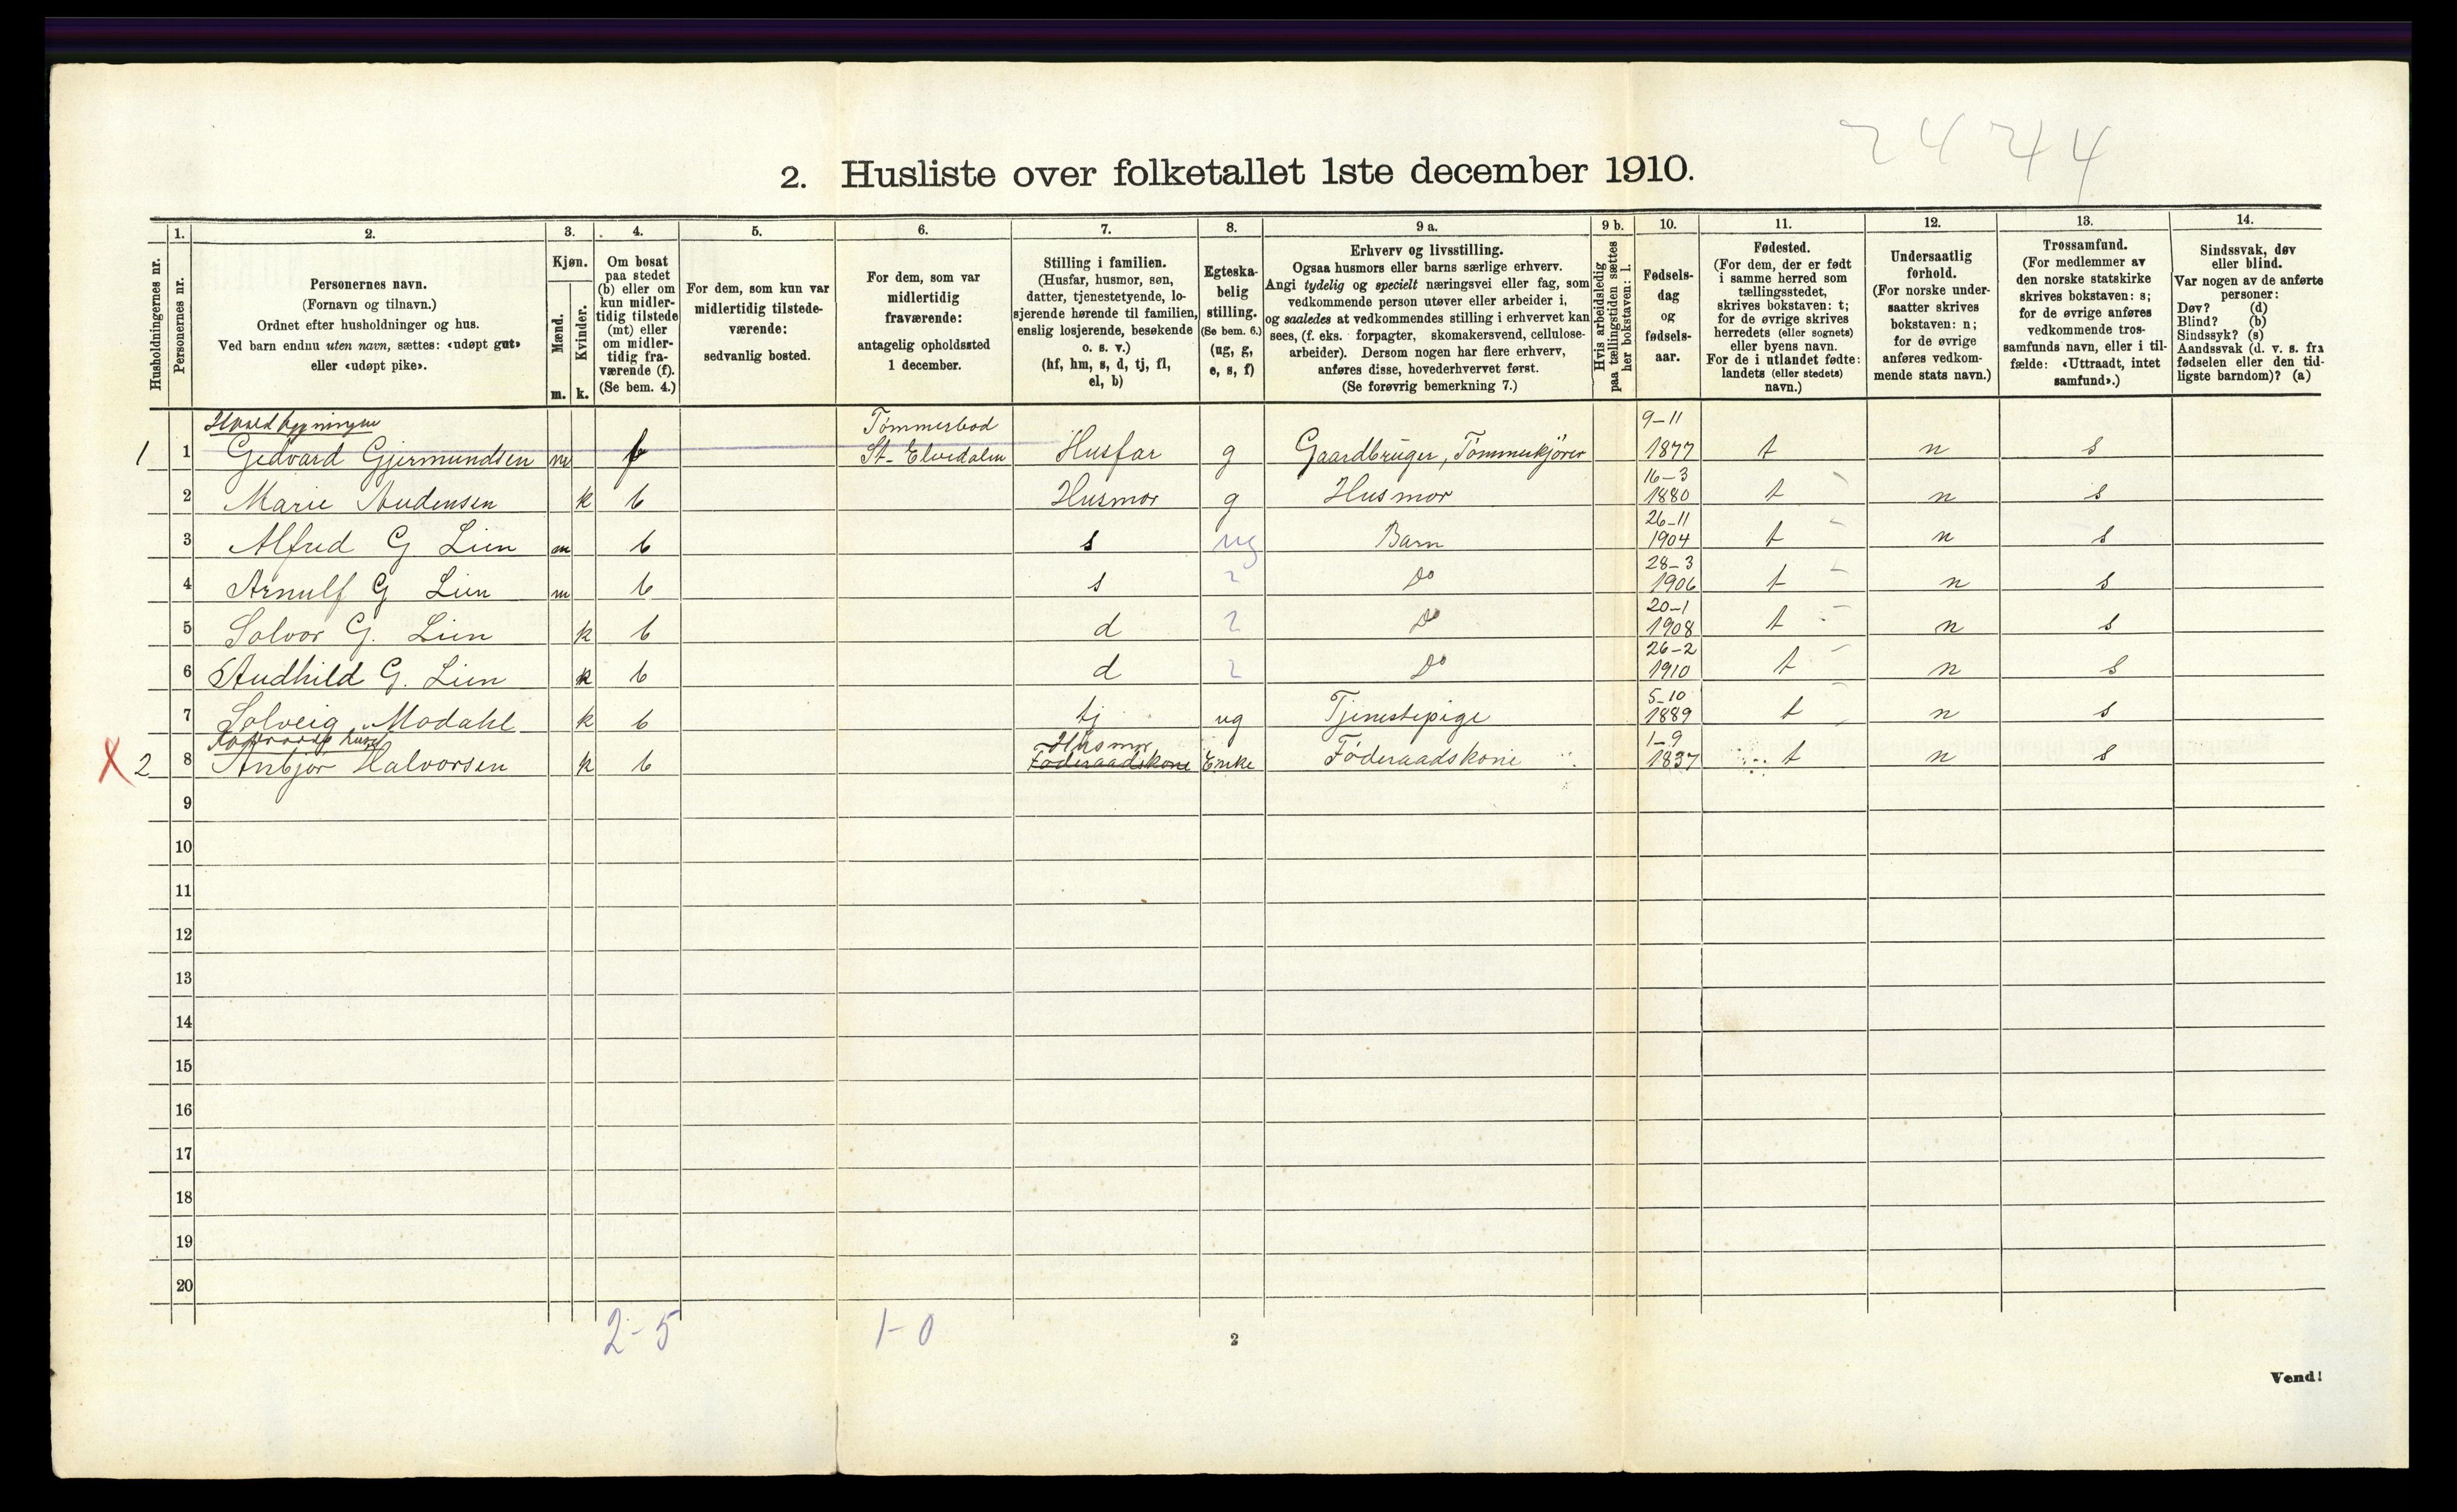 2 4 2 4 4
2. Husliste over folketallet 1ste december 1910.
1. 2. 3. 4. 5. 6. 7. 8. 9 a. 9 b. 10. 11. 12. 13. 14.
Husholdningernes nr.
Personernes nr.
Personernes navn.
(Fornavn og tilnavn.)
Ordnet efter husholdninger og hus.
Ved barn endnu uten navn, sættes: «udøpt gut»
eller «udøpt pike».
Kjøn.
Mænd.
Kvinder.
m. k.
Om bosat
paa stedet
(b) eller om
kun midler-
tidig tilstede
(mt) eller
om midler-
tidig fra-
værende (f).
(Se bem. 4.)
For dem, som kun var
midlertidig tilstede-
værende:
sedvanlig bosted.
For dem, som var
midlertidig
fraværende:
antagelig opholdssted
1 december.
Stilling i familien.
(Husfar, husmor, søn,
datter, tjenestetyende, lo-
sjerende hørende til familien,
enslig losjerende, besøkende
o. s. v.)
(hf, hm, s, d, tj, fl,
el, b)
Egteska-
belig
stilling.
(Se bem. 6.)
(ug, g,
e, s, f)
Erhverv og livsstilling.
Ogsaa husmors eller barns særlige erhverv.
Angi tydelig og specielt næringsvei eller fag, som
vedkommende person utøver eller arbeider i,
og saaledes at vedkommendes stilling i erhvervet kan
sees, (f. eks. forpagter, skomakersvend, cellulose-
arbeider). Dersom nogen har flere erhverv,
anføres disse, hovederhvervet først.
(Se forøvrig bemerkning 7.)
Hvis arbeidsledig
paa tællingstiden sættes
her bokstaven: l.
Fødsels-
dag
og
fødsels-
aar.
Fødested.
(For dem, der er født
i samme herred som
tællingsstedet,
skrives bokstaven: t;
for de øvrige skrives
herredets (eller sognets)
eller byens navn.
For de i utlandet fødte:
landets (eller stedets)
navn.)
Undersaatlig
forhold.
(For norske under-
saatter skrives
bokstaven: n;
for de øvrige
anføres vedkom-
mende stats navn.)
Trossamfund.
(For medlemmer av
den norske statskirke
skrives bokstaven: s;
for de øvrige anføres
vedkommende tros-
samfunds navn, eller i til-
fælde: «Uttraadt, intet
samfund».)
Sindssvak, døv
eller blind.
Var nogen av de anførte
personer:
Døv? (d)
Blind? (b)
Sindssyk? (s)
Aandssvak (d. v. s. fra
fødselen eller den tid-
ligste barndom)? (a)
Hovedbygningen Tømmerbod 9-11
1 1 Gedvard Gjermundsen m f St-Elvedalen Husfar g Gaardbruger, Tømmerkjører 1877 t n s
2 Marie Audensen k b Husmor g Husmor 16-3 1880 t n s
3 Alfred G Lien m b s ug Barn 26-11 1904 t n s
4 Arnulf G Lien m b s " Do 28-3 1906 t n s
5 Solvor G. Lien k b d " Do 20-1 1908 t n s
6 Audhild G. Lien k b d " Do 26-2 1910 t n s
7 Solveig Modahl k b tj ug Tjenestepige 5-10 1889 t n s
Husmor 1-9
X 2 8 Anbjør Halvorsen k b Føderaadskone Enke Føderaadskone 1837 t n s
9
10
11
12
13
14
15
16
17
18
19
20
2-5 1-0
2
Vend!